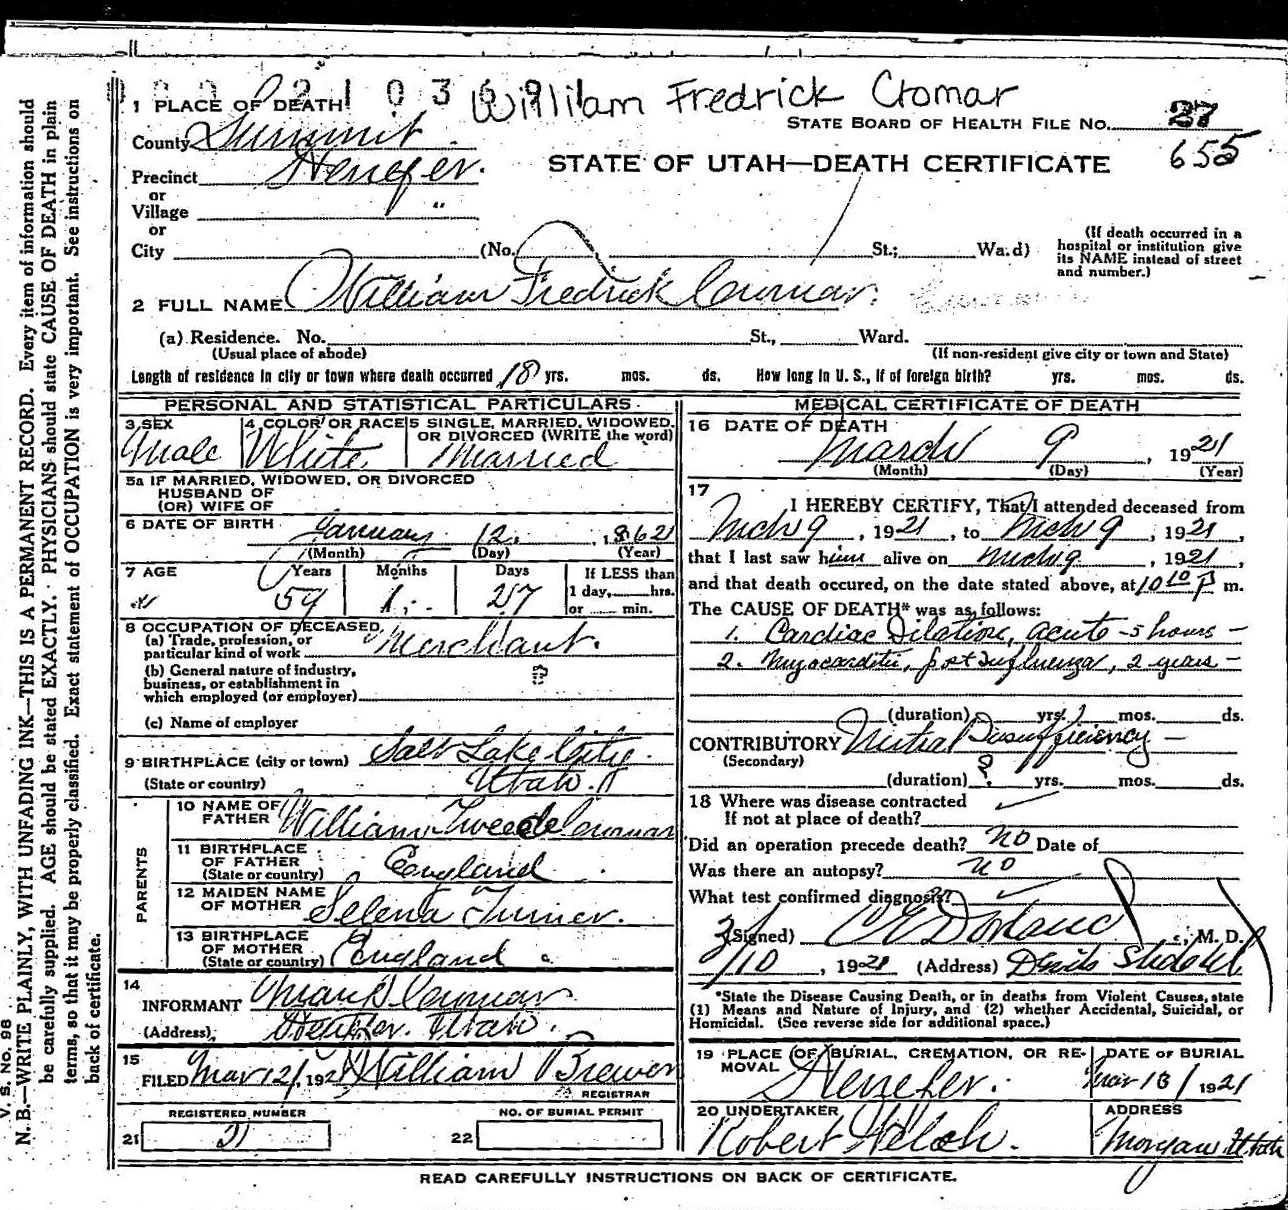 William Fredrick Cromar
1 PLACE OF DEATH
STATE BOARD OF HEALTH FILE NO. 27
655
County Summit
STATE OF UTAH—DEATH CERTIFICATE
Precinct Henefer.
or
Village "
or
City (No. St.; Wa.d)
(If death occurred in a hospital or institution give its NAME instead of street and number.)
2 FULL NAME William Fredrick Cromar.
(a) Residence. No. St., Ward.
(Usual place of abode) (If non-resident give city or town and State)
Length of residence in city or town where death occurred 18 yrs. mos. ds. How long in U. S., if of foreign birth? yrs. mos. ds.
PERSONAL AND STATISTICAL PARTICULARS
3 SEX 4 COLOR OR RACE 5 SINGLE, MARRIED, WIDOWED,
OR DIVORCED (WRITE the word)
Male White Married
5a IF MARRIED, WIDOWED, OR DIVORCED
HUSBAND OF
(OR) WIFE OF
6 DATE OF BIRTH January 12. 1862
(Month) (Day) (Year)
7 AGE Years Months Days If LESS than
59 1 27 1 day, hrs.
or min.
8 OCCUPATION OF DECEASED
(a) Trade, profession, or
particular kind of work Merchant.
(b) General nature of industry,
business, or establishment in
which employed (or employer)
?
(c) Name of employer
9 BIRTHPLACE (city or town) Salt Lake City
(State or country) Utah.
PARENTS
10 NAME OF
FATHER William Tweede Cromar
11 BIRTHPLACE
OF FATHER
(State or country) England
12 MAIDEN NAME
OF MOTHER Selena Turner.
13 BIRTHPLACE
OF MOTHER
(State or country) England
14
INFORMANT Cromar
(Address) Henefer. Utah.
15
FILED Mar 12/, 1921 William Brewer
REGISTRAR
REGISTERED NUMBER NO. OF BURIAL PERMIT
21 21 22
MEDICAL CERTIFICATE OF DEATH
16 DATE OF DEATH
March 9, 1921
(Month) (Day) (Year)
17
I HEREBY CERTIFY, That I attended deceased from
Mch 9, 1921, to Mch 9, 1921,
that I last saw him alive on Mch 9, 1921,
and that death occured, on the date stated above, at 10 10 P m.
The CAUSE OF DEATH* was as follows:
1. Cardiac Dilation, acute - 5 hours -
2. Myocarditis, post influenza, 2 years -
(duration) yrs. mos. ds.
CONTRIBUTORY Mitral Insufficiency -
(Secondary)
(duration) ? yrs. mos. ds.
18 Where was disease contracted
If not at place of death?
Did an operation precede death? no Date of
Was there an autopsy? no
What test confirmed diagnosis?
(Signed) M. D.
3/10, 1921 (Address)
*State the Disease Causing Death, or in deaths from Violent Causes, state
(1) Means and Nature of Injury, and (2) whether Accidental, Suicidal, or
Homicidal. (See reverse side for additional space.)
19 PLACE OF BURIAL, CREMATION, OR RE-
MOVAL Henefer.
DATE OF BURIAL
Mar 13/1921
20 UNDERTAKER
Robert Welch.
ADDRESS
Morgan Utah
READ CAREFULLY INSTRUCTIONS ON BACK OF CERTIFICATE.
V. S. No. 98
N. B.—WRITE PLAINLY, WITH UNFADING INK—THIS IS A PERMANENT RECORD. Every item of information should
be carefully supplied. AGE should be stated EXACTLY. PHYSICIANS should state CAUSE OF DEATH in plain
terms, so that it may be properly classified. Exact statement of OCCUPATION is very important. See instructions on
back of certificate.